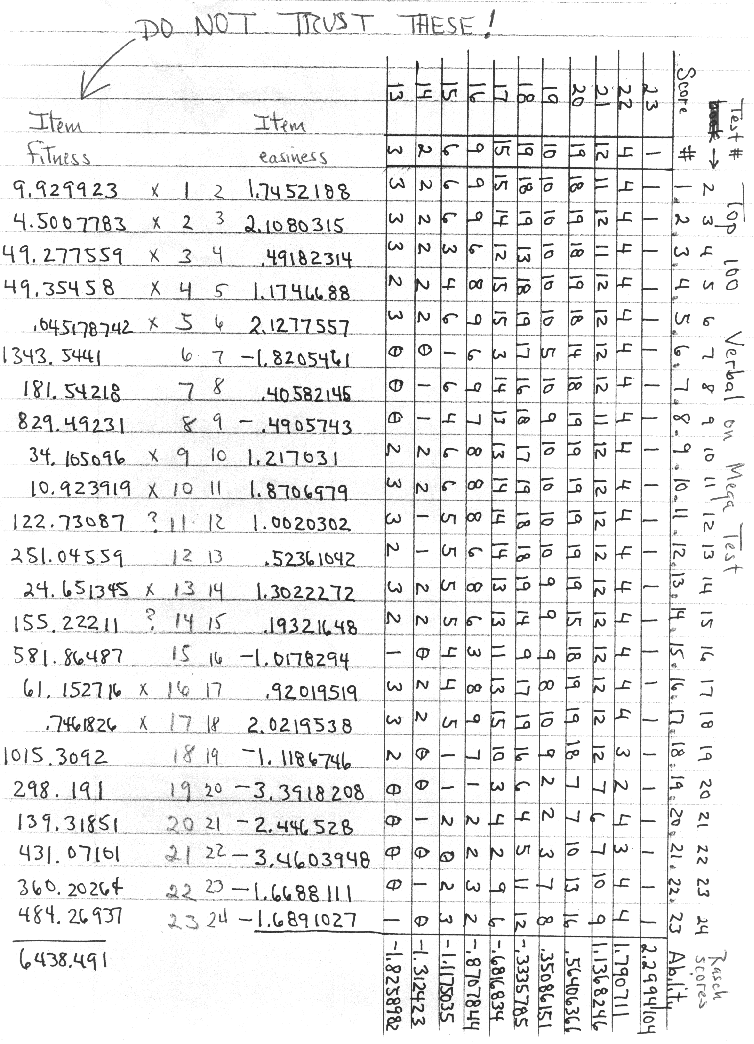 DO NOT TRUST THESE!
Item Item
fitness easiness
9.929923 x 1 2 1.7452188
4.5007783 x 2 3 2.1080315
49.277559 x 3 4 .49182314
49.35458 x 4 5 1.1746688
.045178742 x 5 6 2.1277557
1343.5441 6 7 -1.8205461
181.54218 7 8 .40582145
829.49231 8 9 -.4905743
34.105096 x 9 10 1.217031
10.923919 x 10 11 1.8706979
122.73087 ? 11 12 1.0020302
251.04559 12 13 .52361042
24.651345 x 13 14 1.3022272
155.22211 ? 14 15 .19321648
581.86487 15 16 -1.0178294
61.152716 x 16 17 .92019519
.7461826 x 17 18 2.0219538
1015.3092 18 19 -1.1186746
298.191 19 20 -3.3918208
139.31851 20 21 -2.446528
431.07101 21 22 -3.4603948
360.20264 22 23 -1.6688111
484.26937 23 24 -1.6891027
6438.491
Top 100 Verbal on Mega Test
Test # → 2 3 4 5 6 7 8 9 10 11 12 13 14 15 16 17 18 19 20 21 22 23 24 Rasch scores
Score # 1. 2. 3. 4. 5. 6. 7. 8. 9. 10. 11. 12. 13. 14. 15. 16. 17. 18. 19. 20. 21. 22. 23 Ability
23 1 1 1 1 1 1 1 1 1 1 1 1 1 1 1 1 1 1 1 1 1 1 1 1 2.2994104
22 4 4 4 4 4 4 4 4 4 4 4 4 4 4 4 4 4 4 3 2 4 3 4 4 1.790711
21 12 11 12 11 12 12 12 12 11 12 12 12 12 12 12 12 12 12 12 7 6 7 10 9 1.1368246
20 19 18 19 18 19 18 14 18 19 19 19 19 19 19 15 18 19 19 18 7 7 10 13 16 .56406361
19 10 10 10 10 10 10 5 10 9 10 10 10 10 9 9 9 8 10 9 2 2 3 7 8 .35086151
18 19 18 19 13 18 19 17 16 18 17 19 18 18 19 14 9 17 19 16 6 4 5 11 12 -.3335785
17 15 15 14 12 15 15 3 14 13 13 14 14 14 13 13 11 13 15 10 3 4 2 9 6 -.6816834
16 9 9 9 6 8 9 6 9 7 8 8 8 6 8 6 3 8 9 7 1 2 2 3 2 -.8707844
15 6 6 6 3 4 6 1 6 4 6 6 5 5 5 5 4 4 5 1 1 2 0 2 3 -1.1175035
14 2 2 2 2 2 2 0 1 1 2 2 1 1 2 2 0 2 2 0 0 1 0 1 0 -1.312423
13 3 3 3 3 2 3 0 0 0 2 3 3 2 3 2 1 3 3 2 0 0 0 0 1 -1.8258982